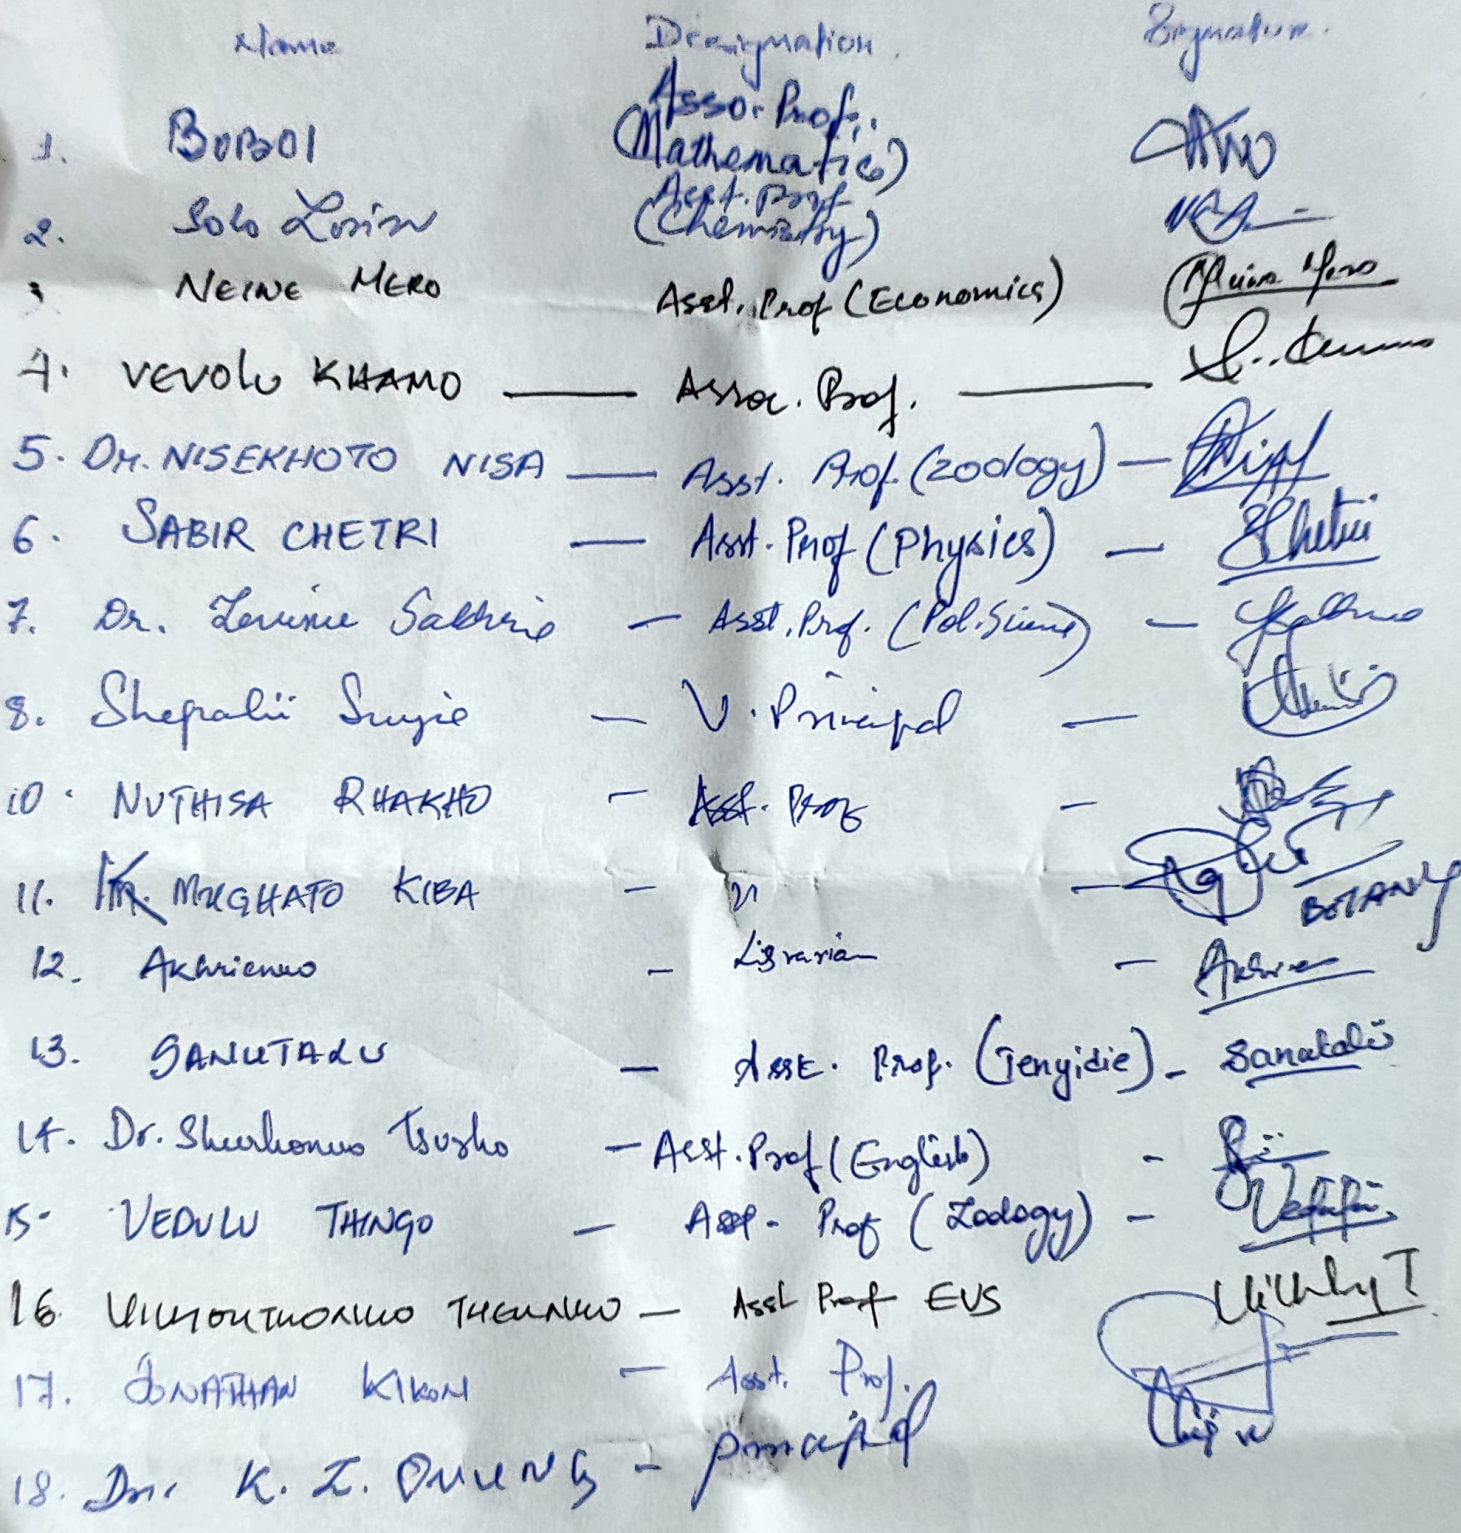 Name Designation. Signature.
1. BUBOI Asso. Prof. (Mathematics)
2. Solo Losin Asst. Prof (Chemistry)
3 NEINE MERO Asst. Prof (Economics) Neine Mero
4. VEVOLU KHAMO — Assoc. Prof. —
5. Dr. NISEKHOTO NISA — Asst. Prof. (Zoology) —
6. SABIR CHETRI — Asst. Prof (Physics) — SChetri
7. Dr. Sakhrie — Asst. Prof. (Pol. Science) —
8. Shepalü Suyie — V. Principal —
10. NUTHISA RHAKHO — Asst. Prof —
11. MUGHATO KIBA — " — BOTANY
12. Akhrienuo — Librarian —
13. SANUTALU — Asst. Prof. (Tenyidie) - Sanutalü
14. Dr. Shürhonuo Tsürho — Asst. Prof (English) -
15. VEDULU THINGO — Asst. Prof (Zoology) — Vedülü
16. THEUNUO — Asst Prof EVS
17. JONATHAN KIKON — Asst. Prof.
18. Dr. K. — Principal